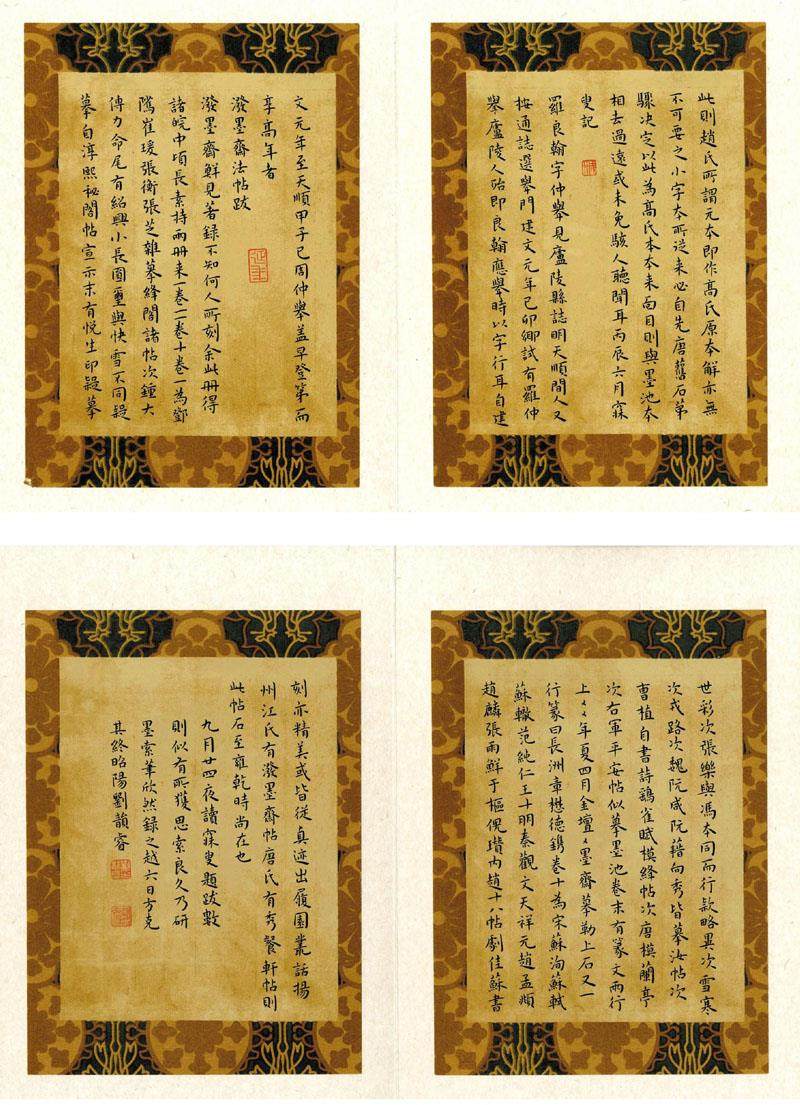 此則趙氏所謂元本即作高氏原本解亦無
不可要之小字本所従来必自先唐舊石第
驟決定以此為高氏本本来面目則與墨池本
相去過遠或未免駭人聽聞耳丙辰六月寐
叟記
羅良翰字仲舉見廬陵縣誌明天順間人又
按通誌選舉門建文元年己卯鄉試有羅仲
舉廬陵人殆即良翰應舉時以字行耳自建
文元年至天順甲子已周仲舉蓋早登第而
享高年者
潑墨齋法帖跋
潑墨齋鮮見著録不知何人所刻余此冊得
諸皖中頃長素持兩冊来一卷二卷十卷一為鄧
隲崔瑗張衡張芝雜摹絳閣諸帖次鍾大
傅力命尾有紹興小長圓璽與快雪不同疑
摹自淳熙秘閣帖宣示末有悦生印疑摹
世彩次張樂與馮本同而行款略異次雪寒
次戎路次魏阮咸阮籍向秀皆摹汝帖次
曹植自書詩鷂雀賦模絳帖次唐模蘭亭
次右軍平安帖似摹墨池卷末有篆文兩行
上々年夏四月金壇々墨齋摹勒上石又一
行篆曰長洲章懋德鐫卷十為宋蘇洵蘇軾
蘇轍范純仁王十朋秦觀文天祥元趙孟頫
趙麟張雨鮮于樞倪瓚內趙十八帖劇佳蘇書
刻亦精美或皆従真迹出履園叢話揚
州江氏有潑墨齋帖唐氏有秀餐軒帖則
此帖石至雍乾時尚在也
九月廿四夜讀寐叟題跋數
則似有所獲思索良久乃研
墨索筆欣然録之越六日方克
其終昭陽劉韻睿